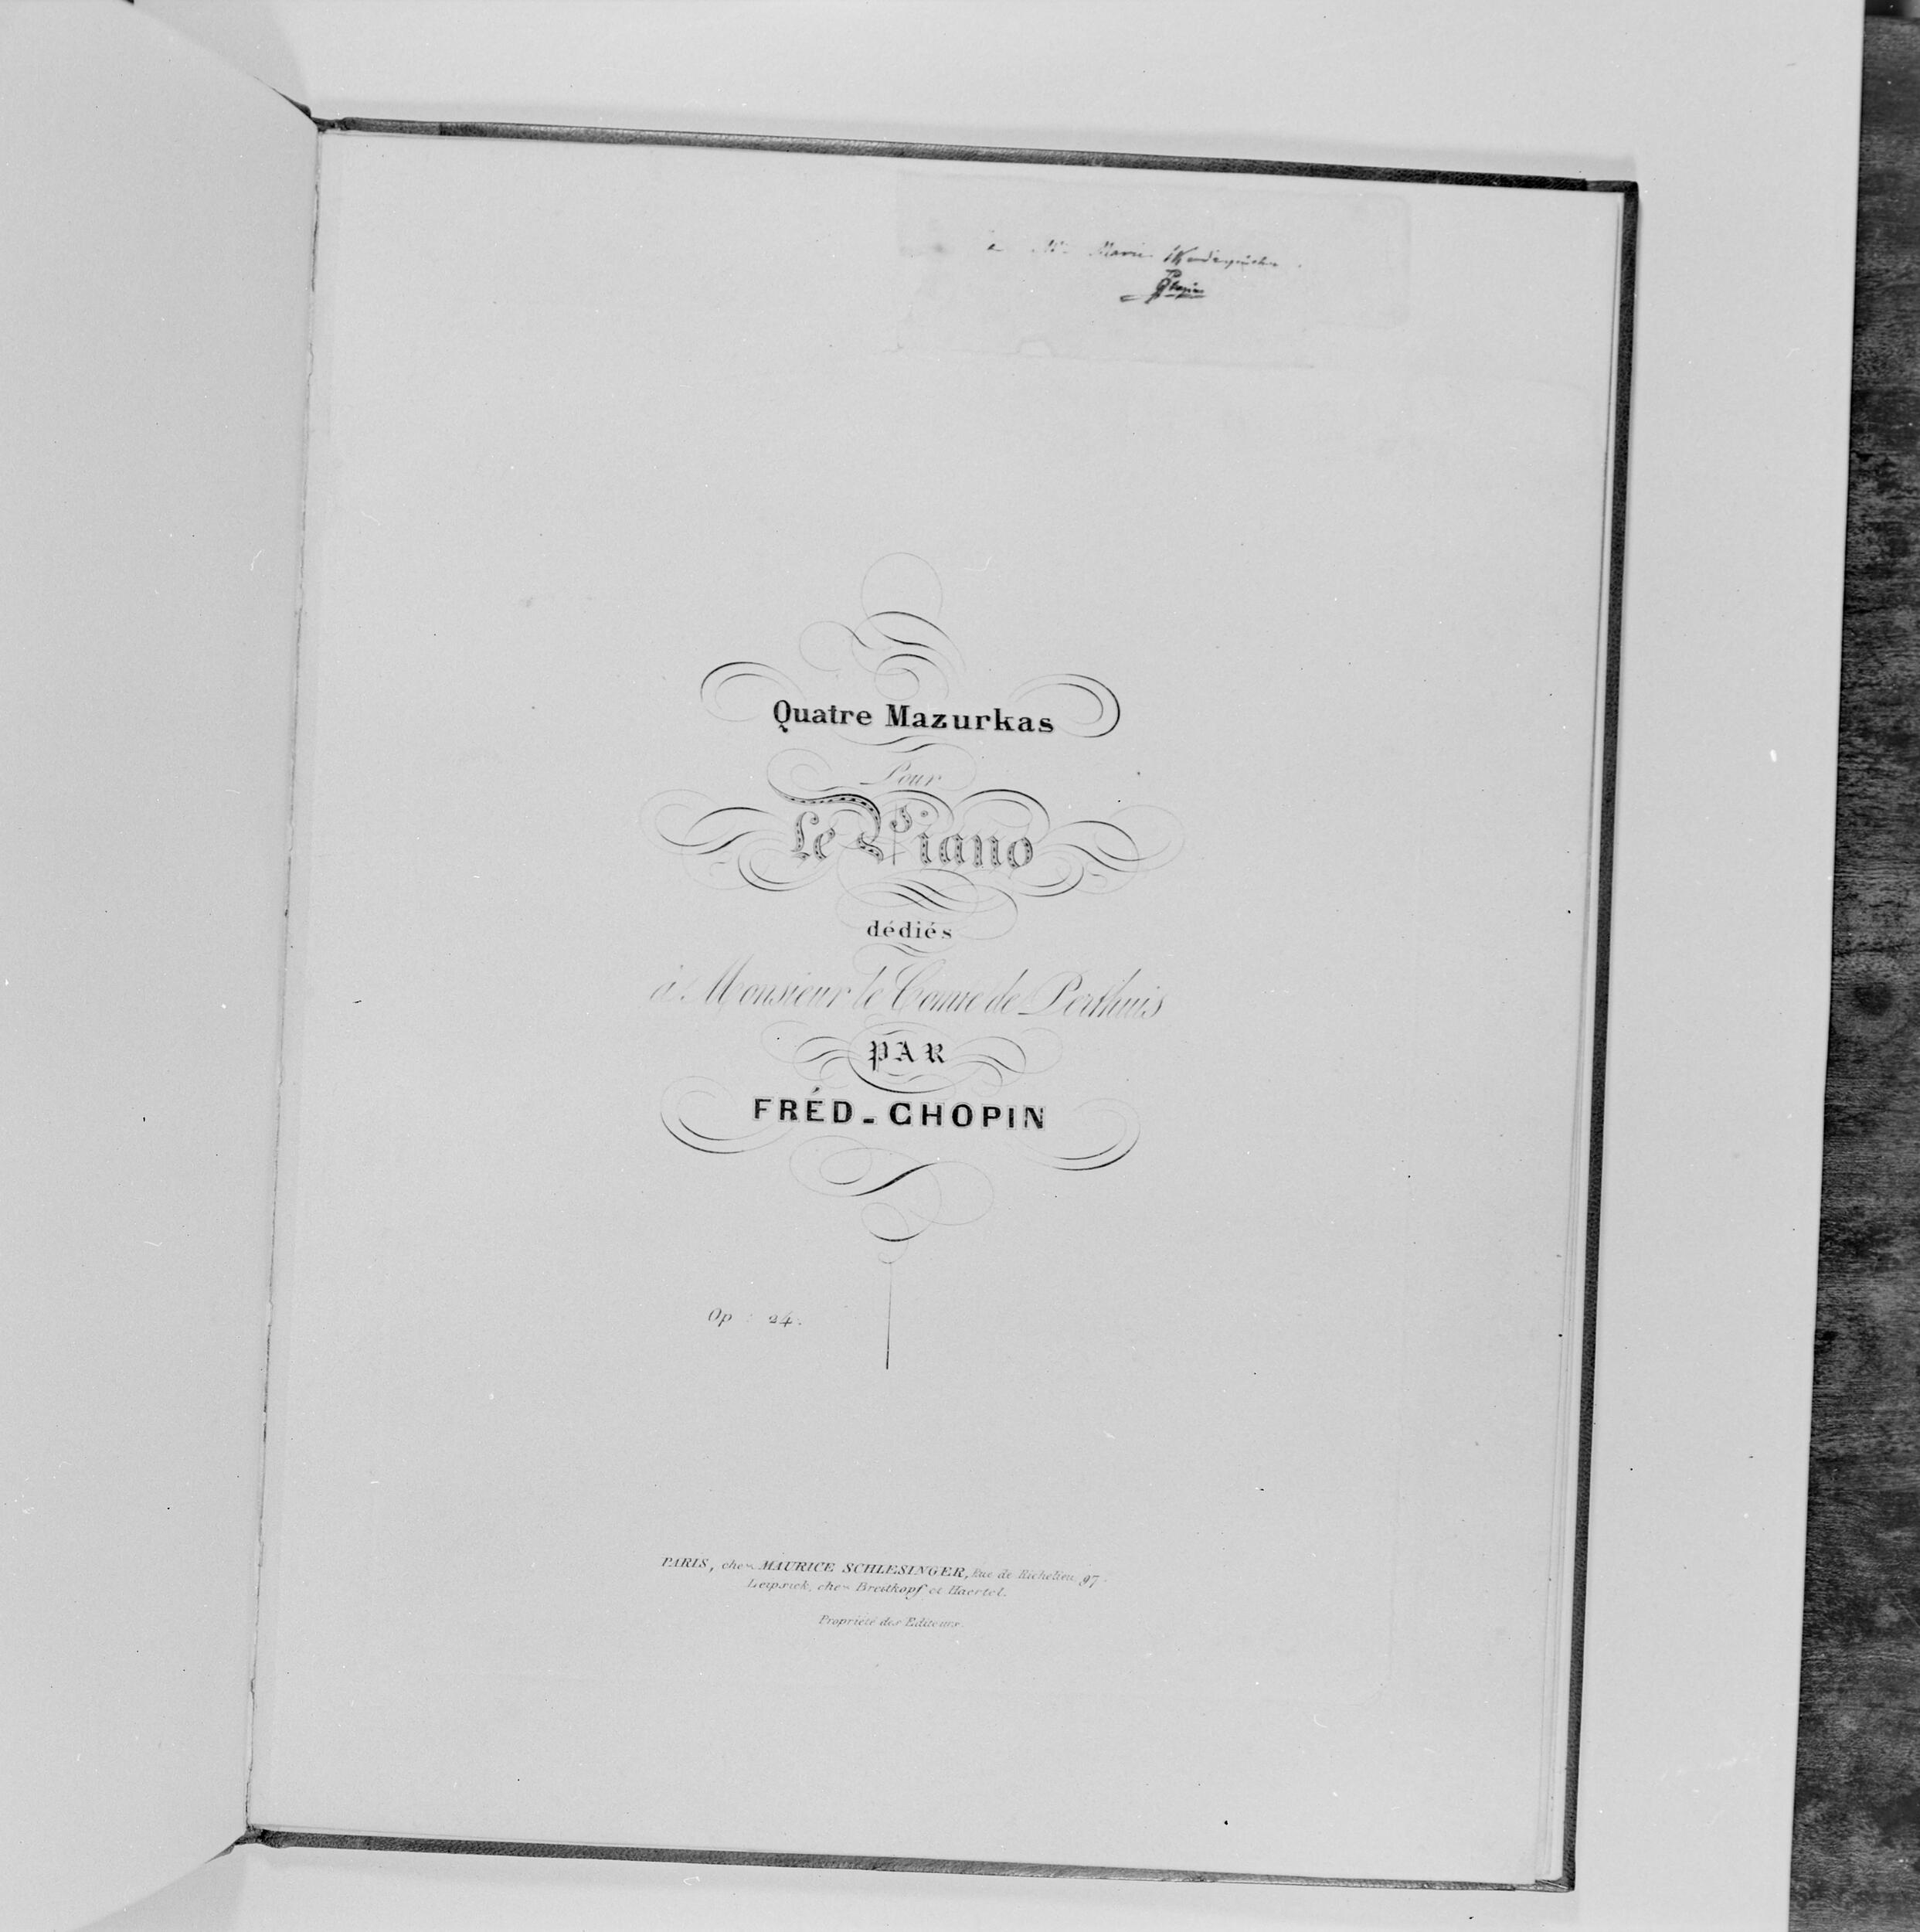 Marie
Chopin
Quatre Mazurkas
Pour
Le Piano
dédiés
à Monsieur le Comte de Perthuis
PAR
FRÉD - CHOPIN
Op : 24.
PARIS, chez MAURICE SCHLESINGER, Rue de Richelieu, 97.
Leipsick, chez Breitkopf et Haertel.
Propriété des Editeurs.